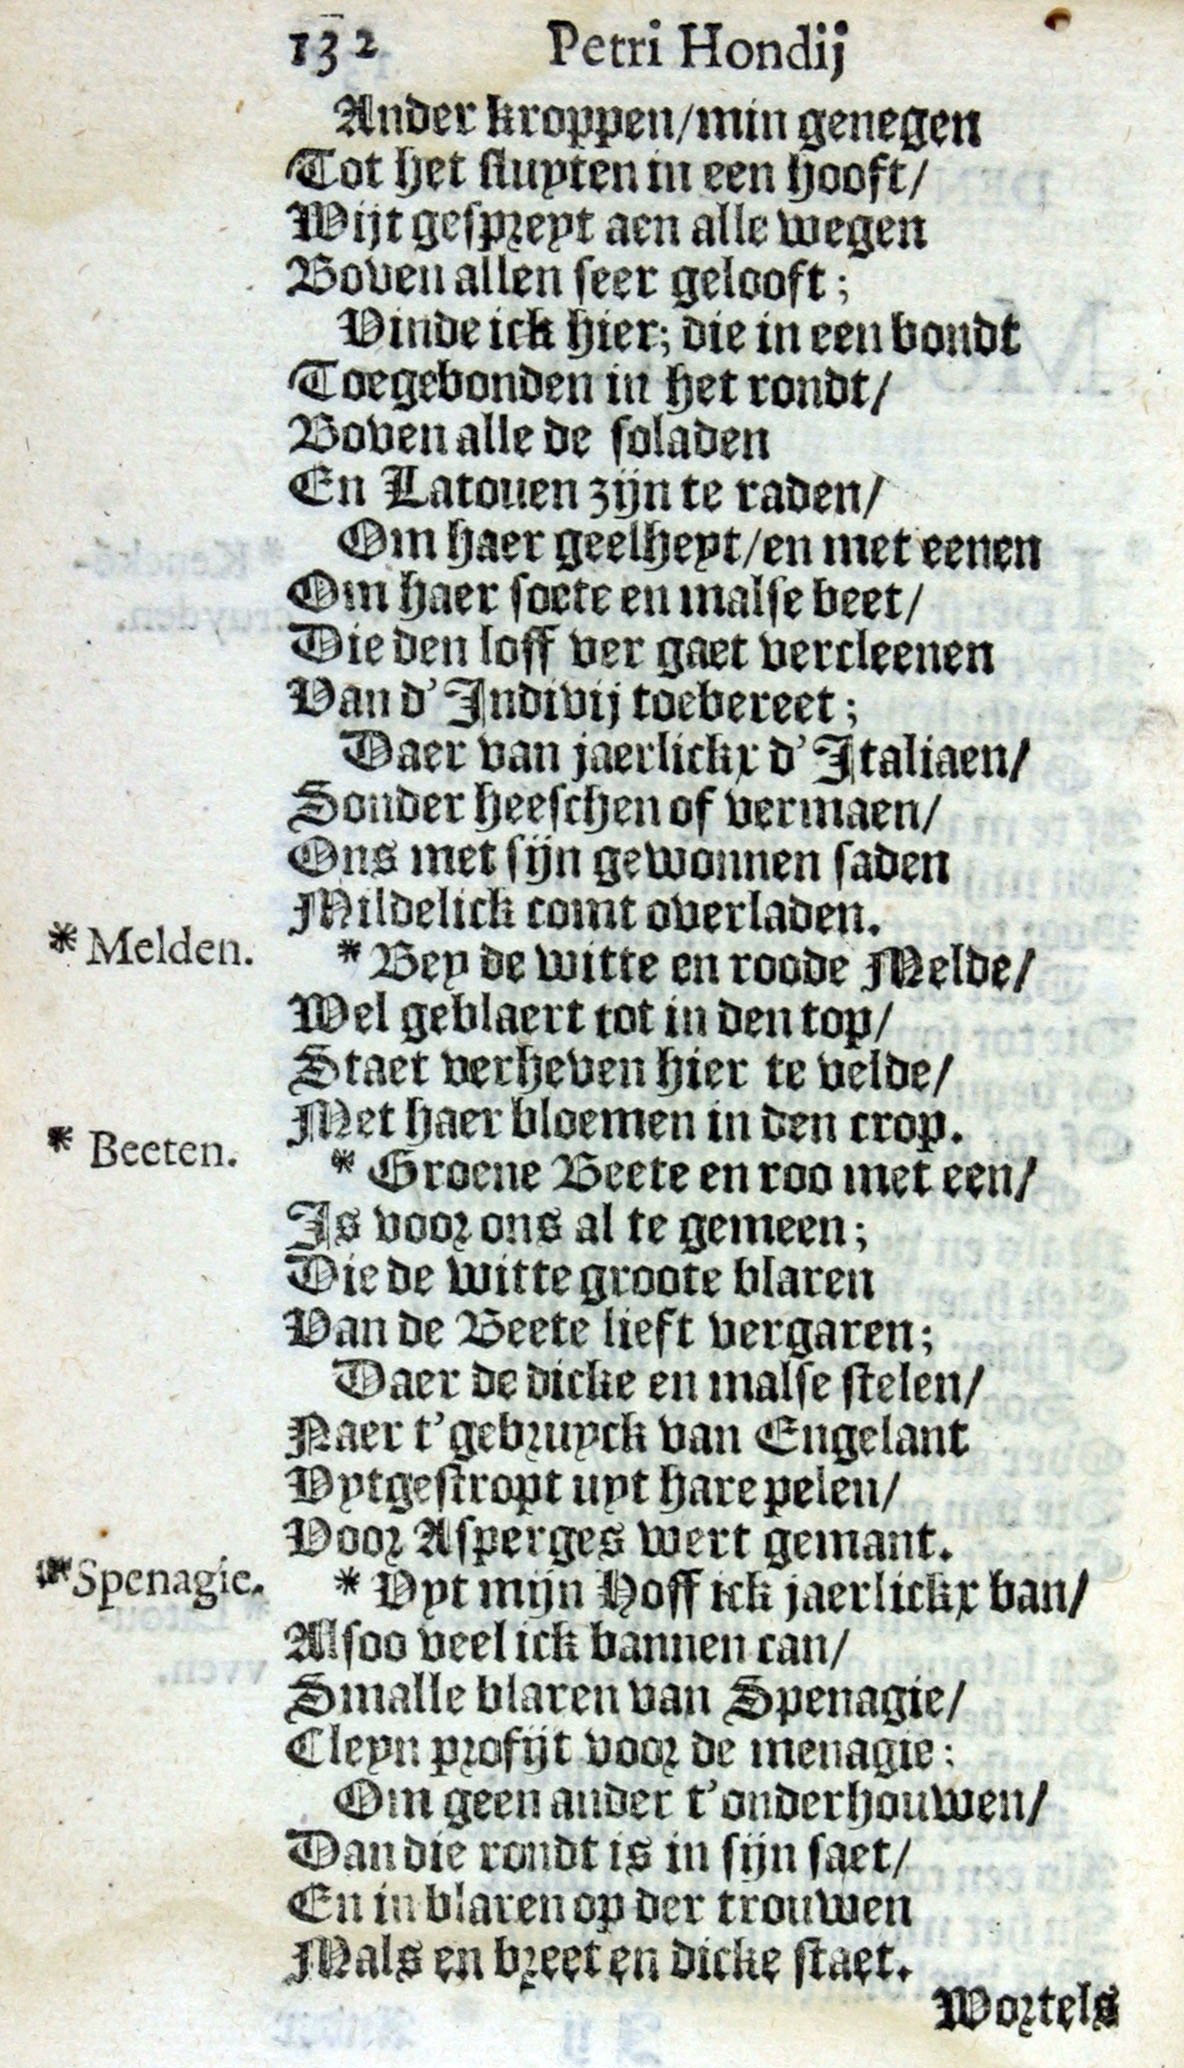 132 Petri Hondij
Ander kroppen/min genegen
Tot het sluyten in een hooft/
Wijt gespreyt aen alle wegen
Boven allen seer gelooft;
Vinde ick hier; die in een bondt
Toegebonden in het rondt/
Boven alle de soladen
En Latouen zijn te raden/
Om haer geelheyt/en met eenen
Om haer soete en malse beet/
Die den loff ver gaet vercleenen
Van d'Indivij toebereet;
Daer van jaerlickx d'Italiaen/
Sonder heeschen of vermaen/
Ons met sijn gewonnen saden
Mildelick comt overladen.
* Melden.
* Bey de witte en roode Melde/
Wel geblaert tot in den top/
Staet verheven hier te velde/
Met haer bloemen in den crop.
* Beeten.
* Groene Beete en roo met een/
Is voor ons al te gemeen;
Die de witte groote blaren
Van de Beete lieft vergaren;
Daer de dicke en malse stelen/
Naer t'gebruyck van Engelant
Vytgestropt uyt hare pelen/
Voor Asperges wert gemant.
* Spenagie.
* Vyt mijn Hoff ick jaerlickx ban/
Alsoo veel ick bannen can/
Smalle blaren van Spenagie/
Cleyn profijt voor de menagie:
Om geen ander t'onderhouwen/
Dan die rondt is in sijn saet/
En in blaren op der trouwen
Mals en breet en dicke staet.
Wortels